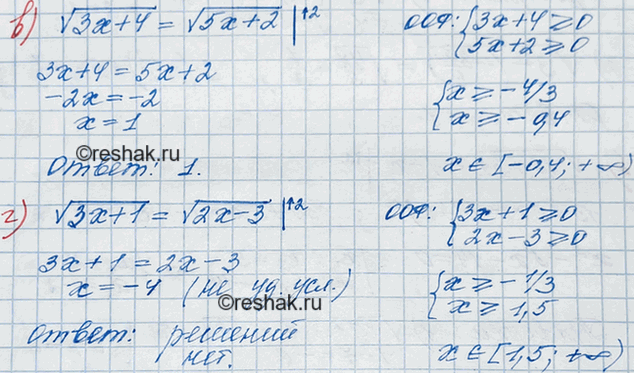 в) √3x+4 = √5x+2 |↑2
ООФ: { 3x+4 ≥ 0
5x+2 ≥ 0
3x+4 = 5x+2
-2x = -2
x = 1
{ x ≥ -4/3
x ≥ -0,4
©reshak.ru
Ответ: 1.
x ∈ [-0,4; +∞)
г) √3x+1 = √2x-3 |↑2
ООФ: { 3x+1 ≥ 0
2x-3 ≥ 0
3x+1 = 2x-3
x = -4 (не уд. усл.)
{ x ≥ -1/3
x ≥ 1,5
©reshak.ru
Ответ: решений
нет.
x ∈ [1,5; +∞)